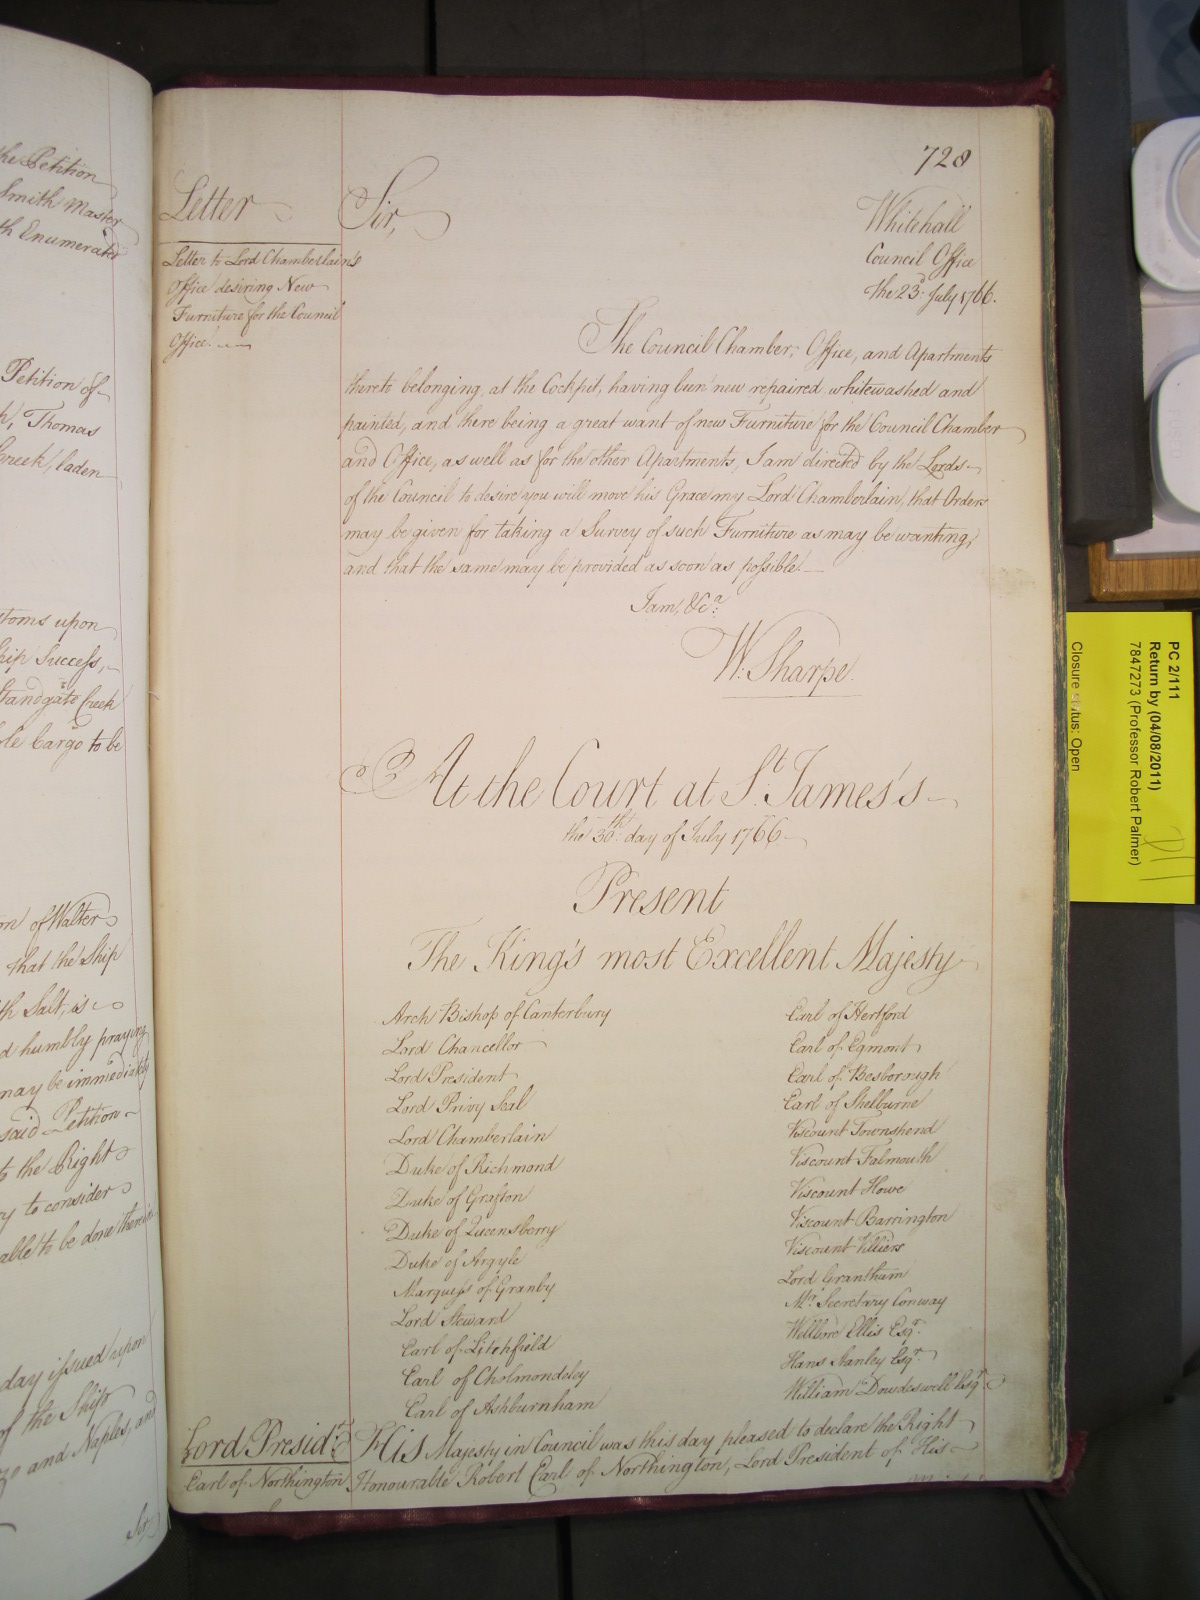 he Petition
Smith Master
th Enumerated
Petition of
h, Thomas
Creek, laden
stoms upon
hip Success,
Standgate Creek
ole Cargo to be
on of Walter
that the Ship
th Salt, is
d humbly praying
may be immediately
said Petition
to the Right
ry to consider
able to be done therein
day issued upon
of the Ship
and Naples, and
728
Letter
Letter to Lord Chamberlain's
Office desiring New
Furniture for the Council
Office.
Sir,
Whitehall
Council Office
the 23d. July 1766.
The Council Chamber, Office, and Apartments
thereto belonging, at the Cockpit, having been new repaired, whitewashed and
painted, and there being a great want of new Furniture for the Council Chamber
and Office, as well as for the other Apartments, I am directed by the Lords
of the Council to desire you will move his Grace my Lord Chamberlain, that Orders
may be given for taking a Survey of such Furniture as may be wanting,
and that the same may be provided as soon as possible.
I am, &ca.
W. Sharpe.
At the Court at St. James's
the 30th. day of July 1766
Present
The King's most Excellent Majesty
Arch Bishop of Canterbury
Lord Chancellor
Lord President
Lord Privy Seal
Lord Chamberlain
Duke of Richmond
Duke of Grafton
Duke of Queensberry
Duke of Argyle
Marquess of Granby
Lord Steward
Earl of Litchfield
Earl of Cholmondeley
Earl of Ashburnham
Earl of Hertford
Earl of Egmont
Earl of Besborough
Earl of Shelburne
Viscount Townshend
Viscount Falmouth
Viscount Howe
Viscount Barrington
Viscount Villiers
Lord Grantham
Mr. Secretary Conway
Wellbore Ellis Esqr.
Hans Stanley Esqr.
William Dowdeswell Esqr.
Lord Presidt.
Earl of Northington
His Majesty in Council was this day pleased to declare the Right
Honourable Robert Earl of Northington, Lord President of His
PC 2/111
Return by (04/08/2011)
7847273 (Professor Robert Palmer)
Closure status: Open